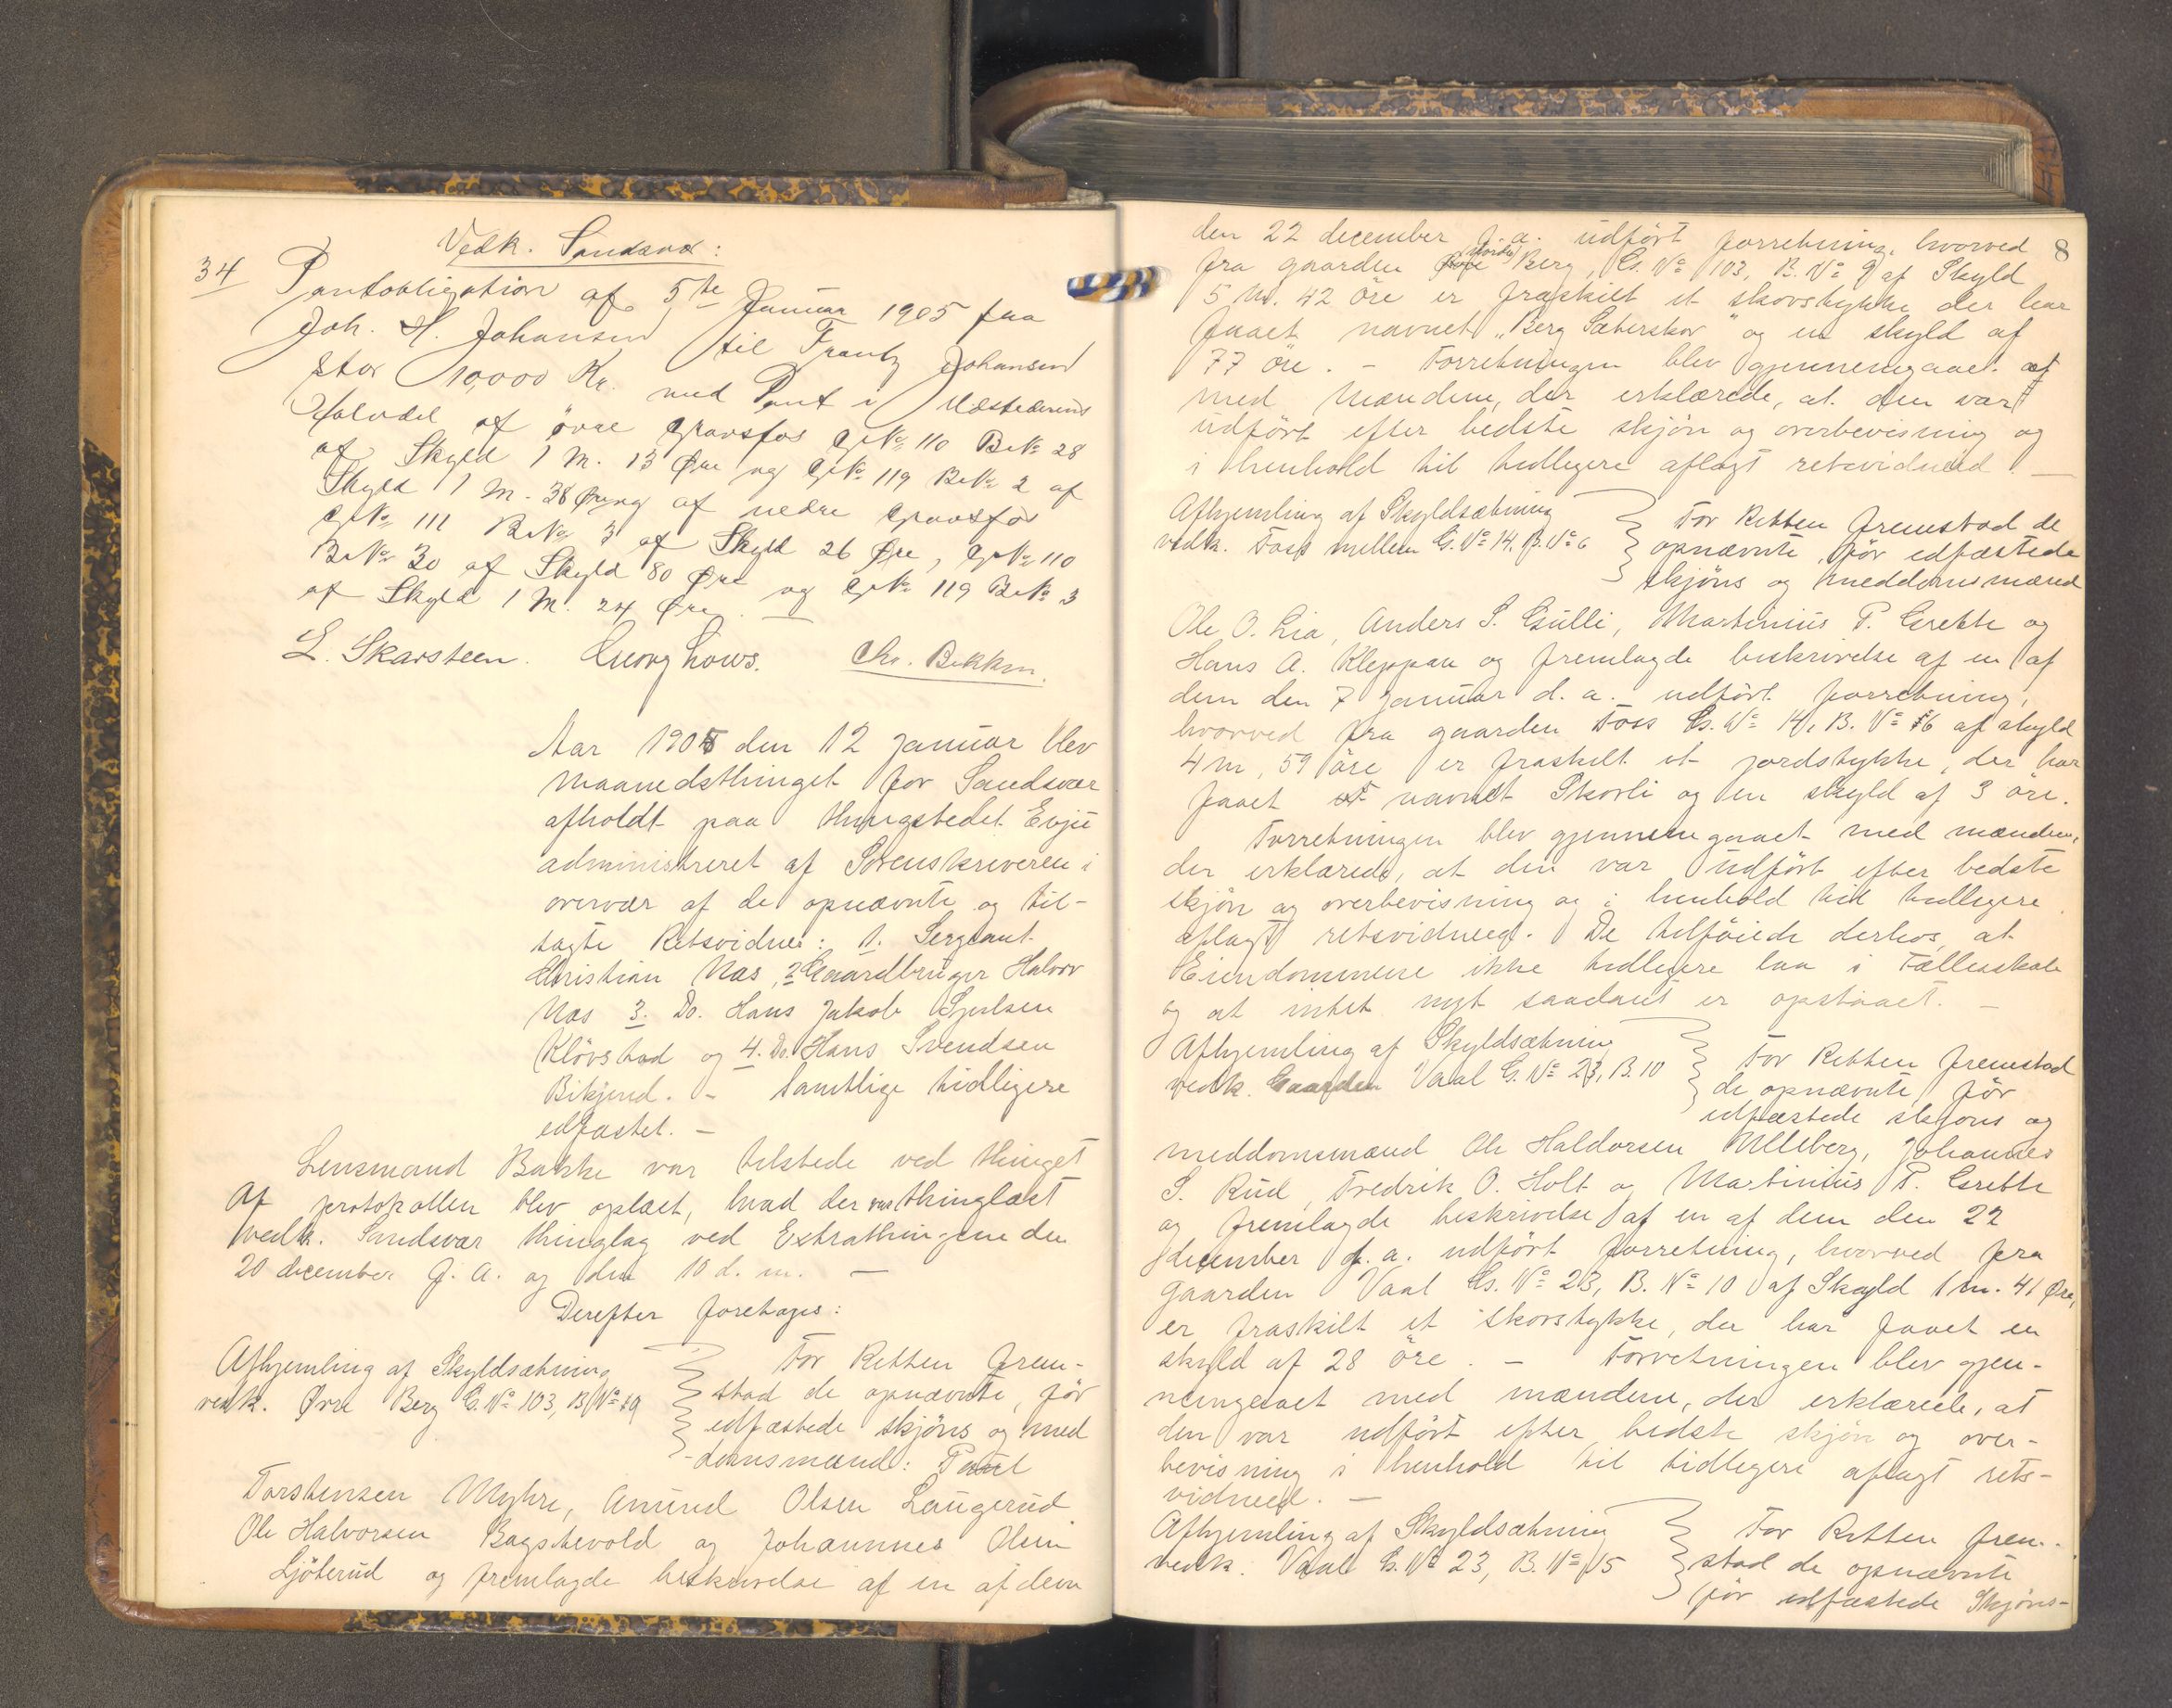 Vedk. Sandsvær:
34 Pantobligation af 5te Januar 1905 fra
Joh. H. Johansen til Frantz Johansen
stor 10,000 Kr. med Pant i Udstederens
Halvdel af övre Gravfos G.No 110 B.No 28
af Skyld 1 M. 13 Øre og G.No 119 B.No 2 af
Skyld 1 M. 38 Øre og af nedre Gravfos
G.No 111 B.No 3 af Skyld 26 Øre, G.No 110
B.No 30 af Skyld 80 Øre og G.No 119 B.No 3
af Skyld 1 M. 24 Øre. —
L. Skarsteen. Georg Lows. Chr. Bakken.
Aar 1905 den 12 januar blev
maanedsthinget for Sandsvær
afholdt paa thingstedet Evju
administreret af Sorenskriveren i
overvær af de opnævnte og til-
sagte Retsvidner: 1. Sergeant
Christian Næs, 2 Gaardbruger Halvor
Næs 3. Do. Hans Jakob
Klövstad og 4. Do. Hans Svendsen
Bikjend. – Samtlige tidligere
edfæstet. —
Lensmand Bakke var tilstede ved thinget
Af protokollen blev oplæst, hvad der var thinglæst
vedk. Sandsvær thinglag ved Extrathingene den
20 december f. a. og den 10 d. m. —
Derefter foretages:
Afhjemling af Skyldsætning
vedk. Øvre Berg G. No 103, B. No 9
For Retten frem-
stod de opnævnte, før
edfæstede skjöns og med
domsmænd: Paul
Torstensen Myhre, Amund Olsen Laugerud
Ole Halvorsen Bagstevold og Johannes Olsen
Ljöterud og fremlagde beskrivelse af en af dem
8
den 22 december f. a. udfört forretning, hvorved
fra gaarden (nordre) Berg, G. No 103, B. No 9 af Skyld
5 M. 42 öre er fraskilt et skovstykke der har
faaet navnet „Berg Sæterskov“ og en skyld af
77 öre. – Forretningen blev gjennemgaaet
med Mændene, der erklærede, at den var
udfört efter bedste skjön og overbevisning og
i henhold til tidligere aflagt retsvidneed. —
Afhjemling af Skyldsætning
vedk. Foss mellem G. No 14, B. No 6
For Retten fremstod de
opnævnte, för edfæstede
skjöns og meddomsmænd
Ole O. Lia, Anders S. Gulli, Martinius P. Grette og
Hans A. Kleppan og fremlagde beskrivelse af en af
dem den 7 januar d. a. udfört forretning,
hvorved fra gaarden Foss G. No 14, B. No 6 af skyld
4 m, 59 öre er fraskilt et jordstykke, der har
faaet navnet Skovli og en skyld af 3 öre.
Forretningen blev gjennemgaaet med mændene,
der erklærede, at den var udfört efter bedste
skjön og overbevisning og i henhold til tidligere
aflagt retsvidneed. De tilföiede derhos, at
Eiendommene ikke tidligere laa i Fælleskab
og at intet nyt saadant er opstaaet. —
Afhjemling af Skyldsætning
vedk. Gaarden Vaal G. No 23, B. 10
For Retten fremstod
de opnævnte för
edfæstede skjöns og
meddomsmænd Ole Haldorsen Ulleberg, Johannes
S. Rud, Fredrik O. Holt og Martinius P. Grette
og fremlagde beskrivelse af en af dem den 22
december f. a. udfört forretning, hvorved fra
gaarden Vaal G. No 23, B. No 10 af Skyld 1 m. 41 Øre,
er fraskilt et skovstykke, der har faaet en
skyld af 28 öre. – Forretningen blev gjen-
nemgaaet med mændene, der erklærede, at
den var udfört efter bedste skjön og over-
bevisning i henhold til tidligere aflagt rets-
vidneed. —
Afhjemling af Skyldsætning
vedk. Vaal G. No 23, B. No 15
For Retten frem-
stod de opnævnte
för edfæstede Skjöns-